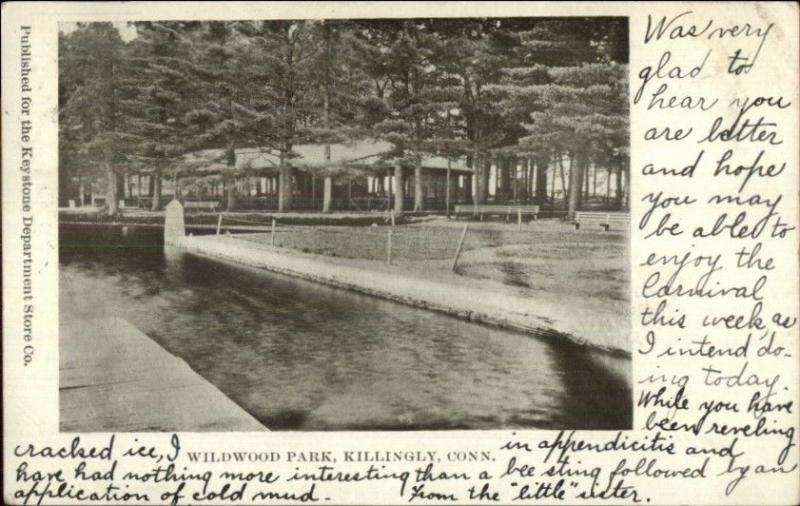 Published for the Keystone Department Store Co.
Was very
glad to
hear you
are better
and hope
you may
be able to
enjoy the
Carnival
this week, as
I intend do-
ing today.
While you have
been reveling
in appendicitis and
cracked ice, I
WILDWOOD PARK, KILLINGLY, CONN.
have had nothing more interesting than a bee sting followed by an
application of cold mud. From the "little" sister.